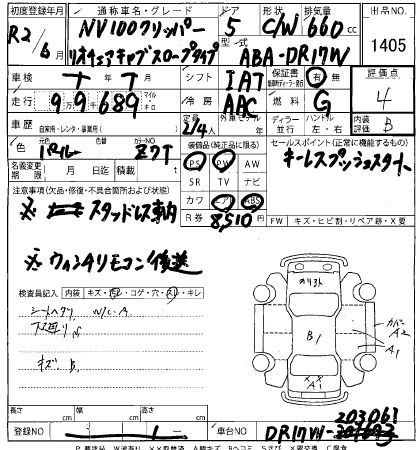 初度登録年月 通称車名・グレード ドア 形状 排気量 出品NO
R2/6 NV100クリッパー 5 C/W 660cc 1405
リオチェアキャブスロープタイプ 型式 ABA-DR17W
車検 年 月 シフト IAT 保証書 有 無 評価点
走行 99,689 マイル キロ 冷房 AAC 燃料 G 4
車歴 自家用・レンタ・事業用( ) 定員 2/4人 ディーラー 並行 ハンドル 左・右 内装評価 B
色 パール カラーNO Z7T 装備品(純正品に限る) セールスポイント(正常に機能するもの)
名義変更期限 積載 t PS PW AW キーレスプッシュスタート
注意事項(欠品・修復・不具合箇所および状態) SR TV ナビ
※ スタッドレス車内 カワ エアB ABS
R券 8,510円 FW キズ・ヒビ割・リペア跡・X要
※ ウィンチリモコン後送
検査員記入 内装 キズ・汚レ・コゲ・穴・スレ・キレ
シートヘタリ W/C.A
下廻り
キズ B
B1
カバー A2
A1
XX
A1
長さ cm 幅 cm 高さ cm
登録NO 車台NO DR17W- 203061